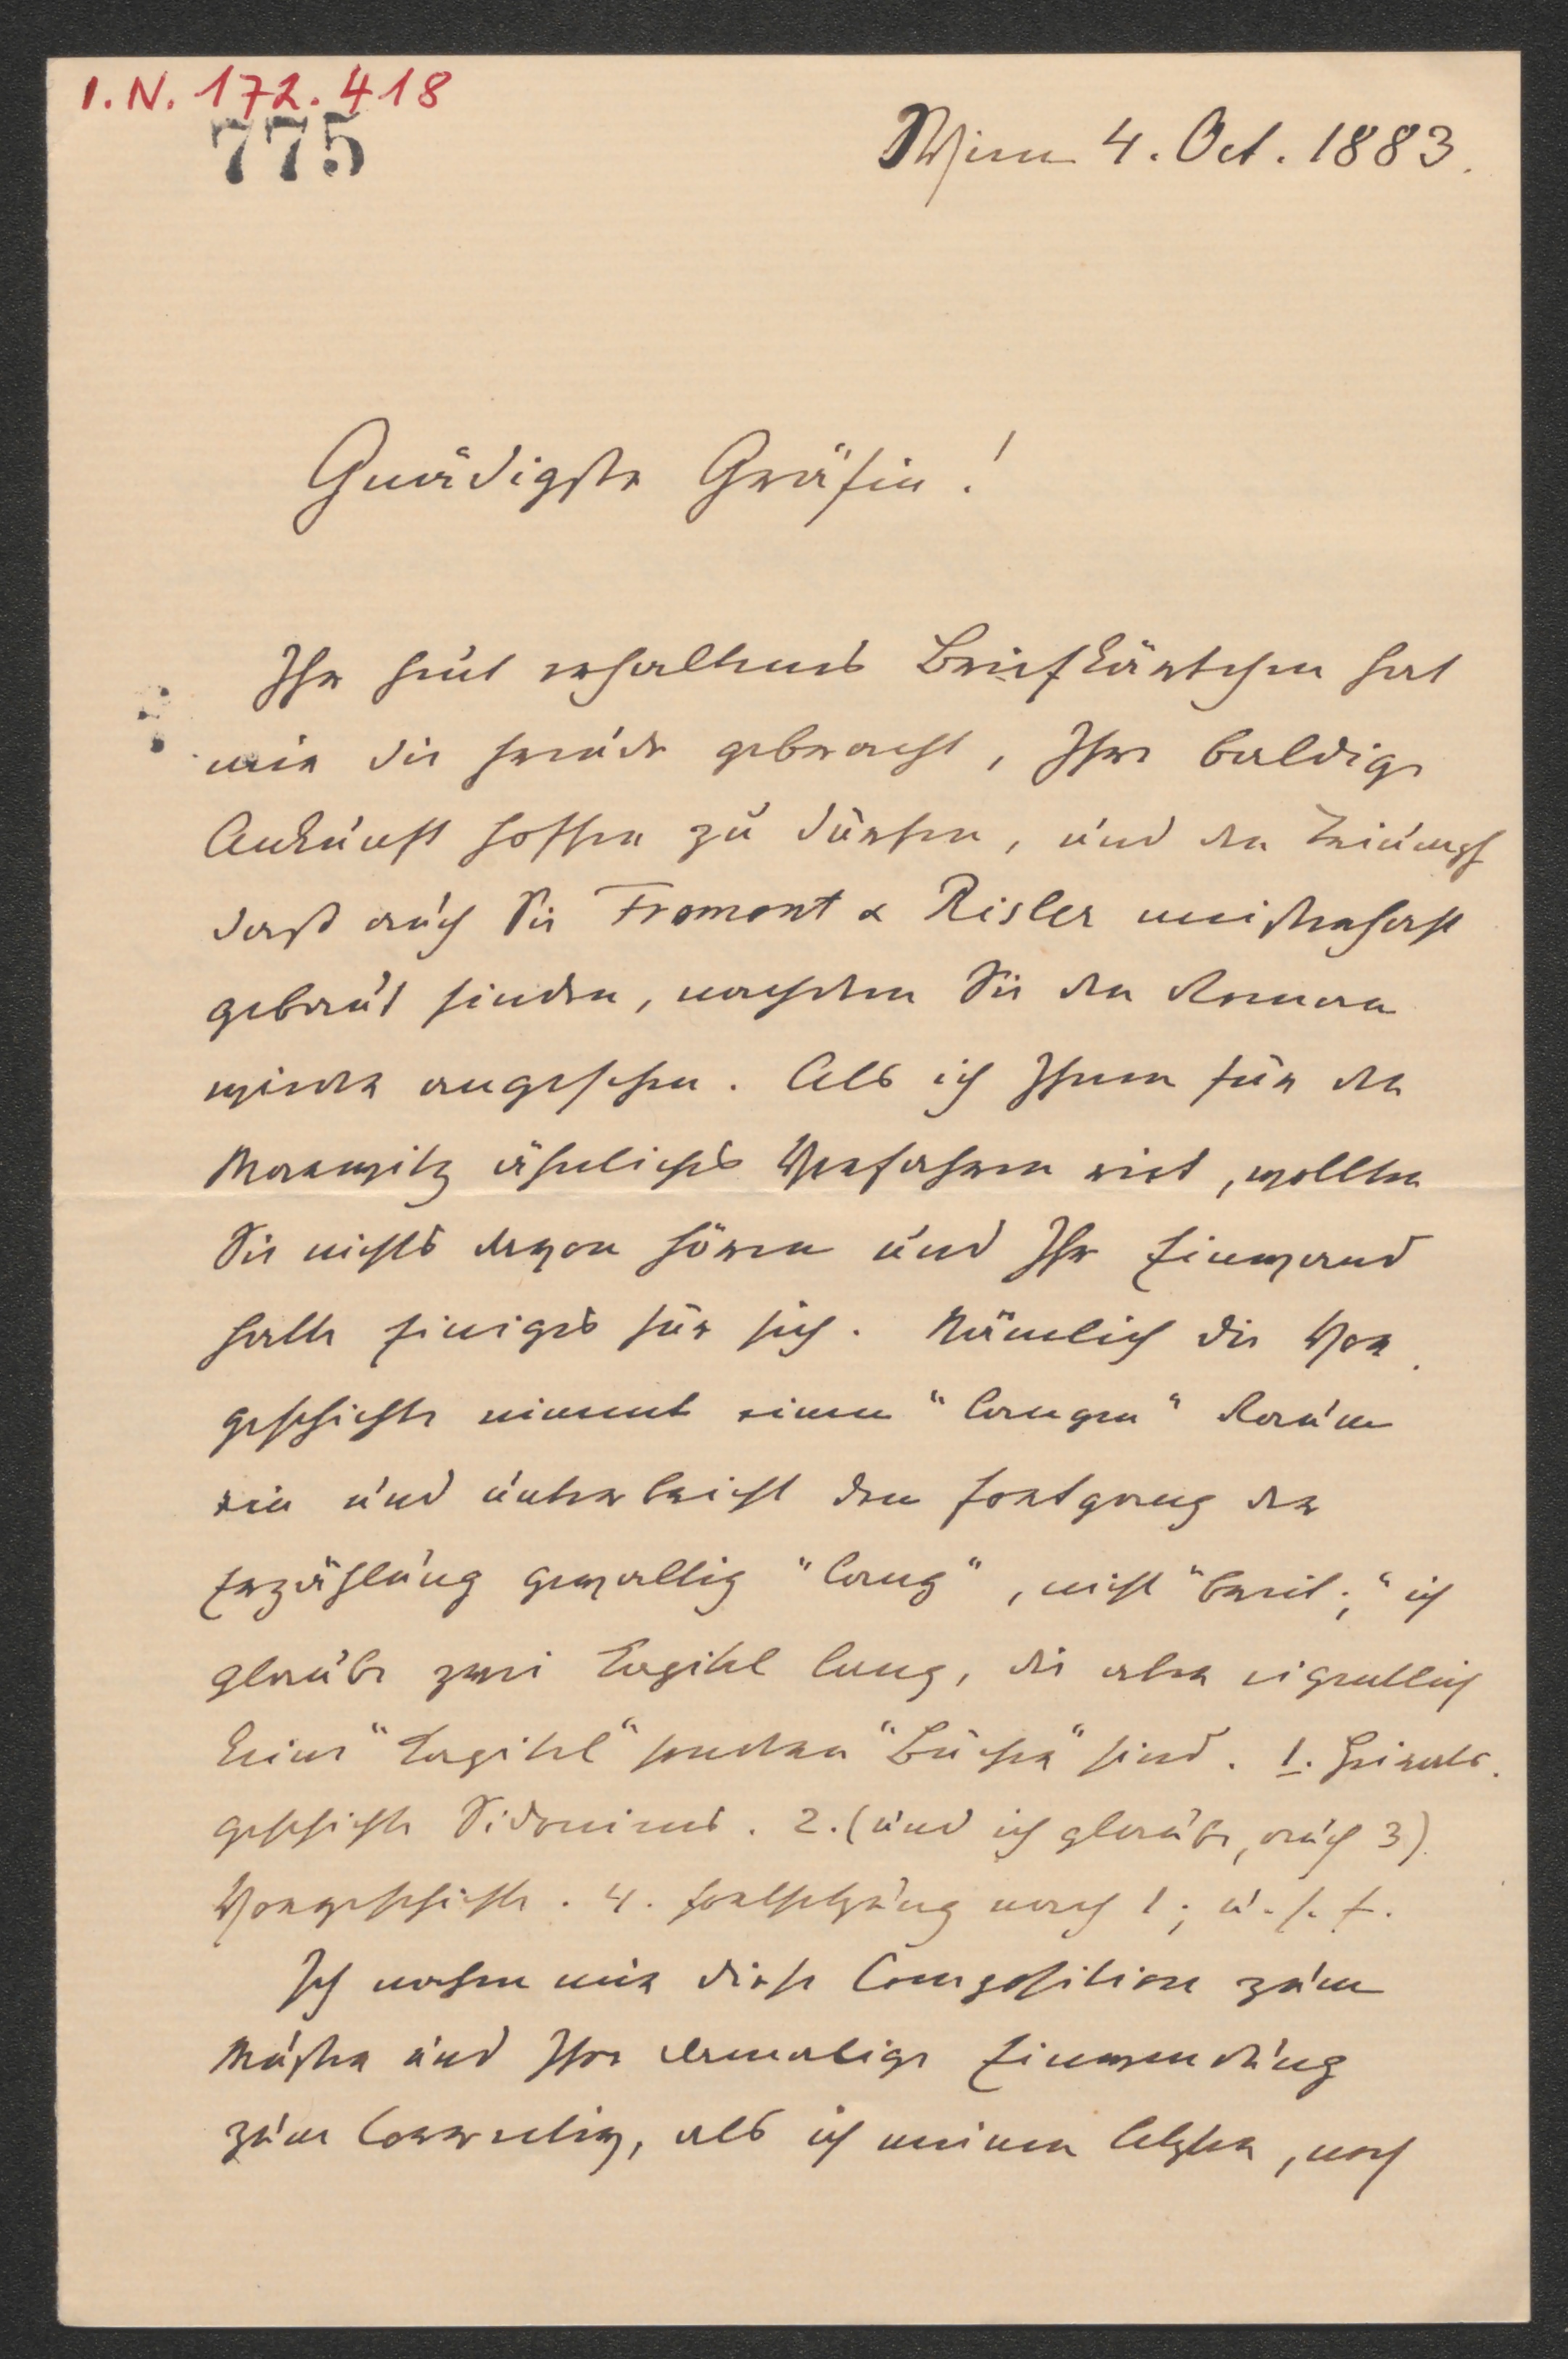 I.N. 172.418
775
Wien 4. Oct. 1883.
Gnädigste Gräfin!
Ihr heut erhaltenes Briefkärtchen hat
mir die Freude gebracht, Ihre baldige
Ankunft hoffen zu dürfen, und den Triumpf
daß auch Sie Fromont & Risler meisterhaft
gebaut finden, nachdem Sie den Roman
wieder angesehen. Als ich Ihnen für den
ähnliches Verfahren riet, wollten
Sie nichts davon hören und Ihr Einwand
hatte Einiges für sich. Nämlich die Vor
geschichte nimmt einen "langen" Raum
ein und unterbricht den Fortgang der
Erzählung gewaltig "lang", nicht "breit;" ich
glaube zwei Kapitel lang, die aber eigentlich
keine "Kapitel" sondern "Bücher" sind. 1. Heirats
geschichte Sidoniens. 2. (und ich glaube, auch 3)
Vorgeschichte. 4. Fortsetzung nach 1; u. s. f.
Ich nahm mir diese Composition zum
Muster und Ihre damalige Einwendung
zum Correctiv, als ich meinen letzten, noch